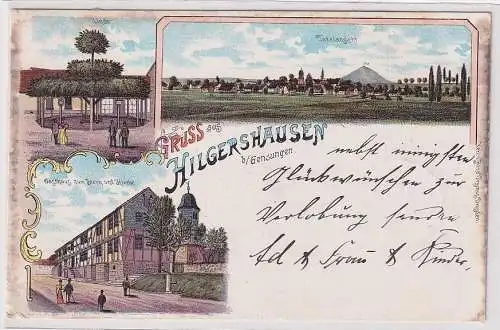 Linde
Totalansicht
GRUSS aus
HILGERSHAUSEN
b/Gensungen.
Gasthaus zum
nebst innigsten
Glückwünschen zur
Verlobung senden
Ad & Frau & Kinder.